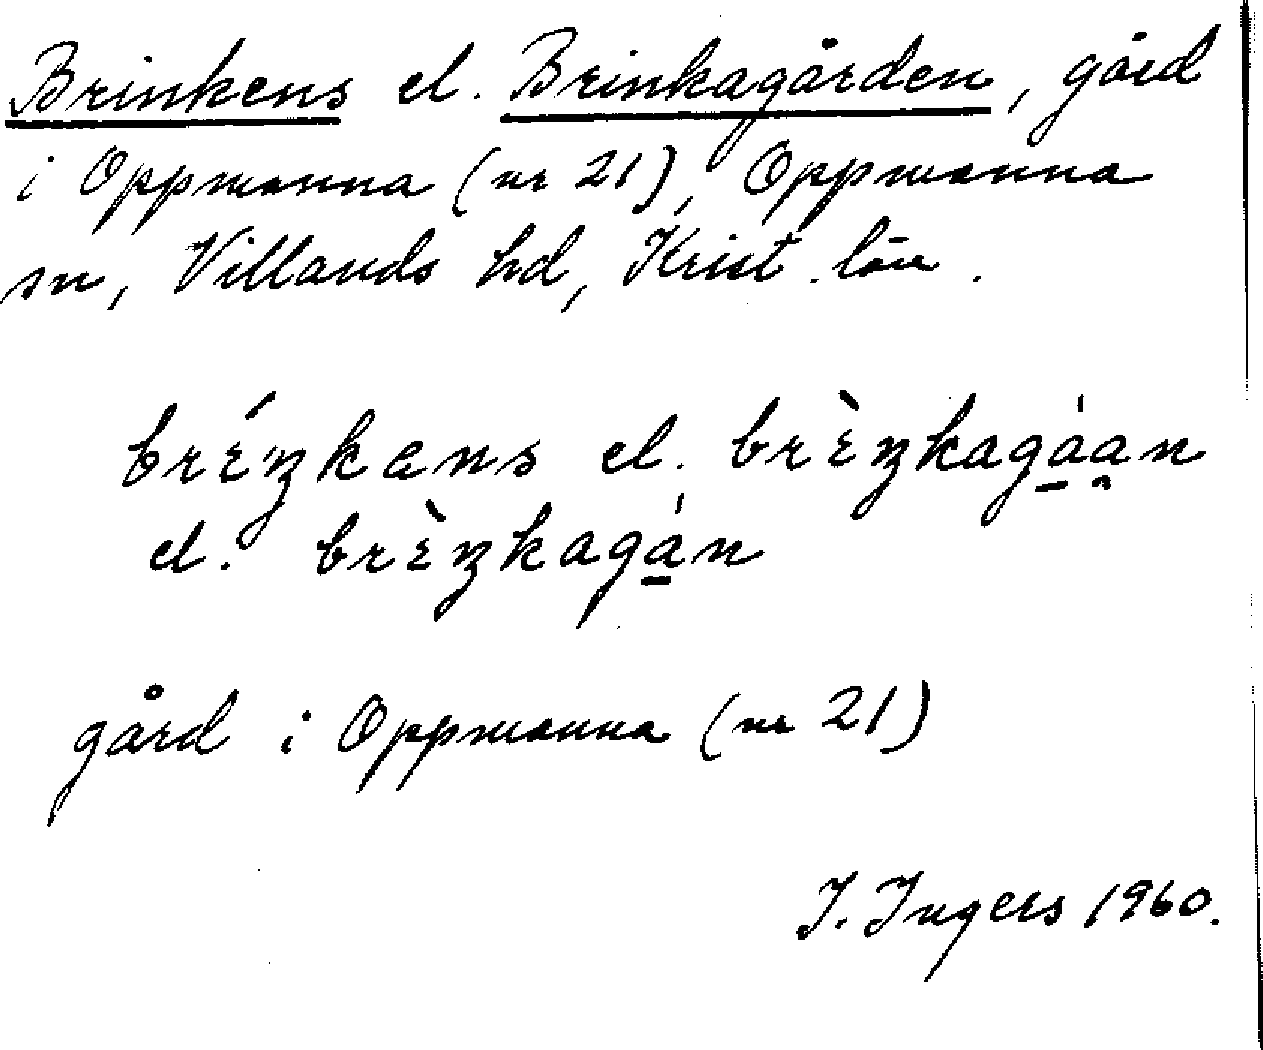 Brinkens el. Brinkagården, gård
i Oppmanna (nr 21), Oppmanna
sn, Villands hd, Krist. län.
bréŋkans el. brɛ̀ŋkagá̱a̯n
el. brɛ̀ŋkagá̱n
gård i Oppmanna (nr 21)
I. Ingers 1960.